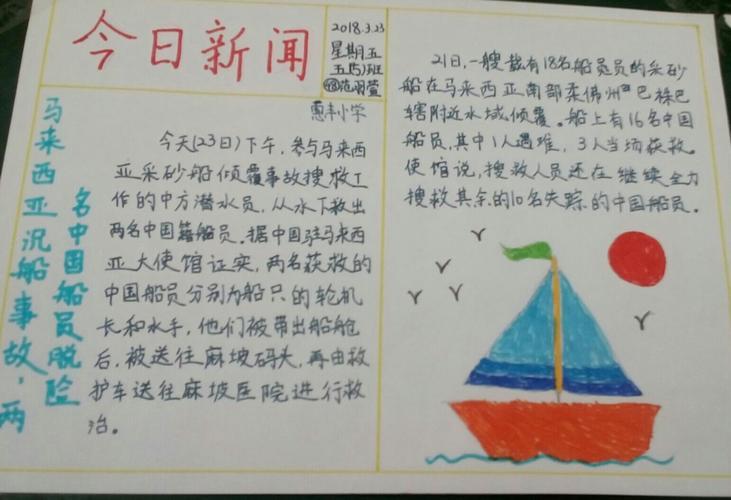 今日新闻
2018.3.23
星期五
五(5)班
范羽萱
惠丰小学
马来西亚沉船事故,两
名中国船员脱险
今天(23日)下午,参与马来西
亚采砂船倾覆事故搜救工
作的中方潜水员,从水下救出
两名中国籍船员。据中国驻马来西
亚大使馆证实,两名获救的
中国船员分别为船只的轮机
长和水手,他们被带出船舱
后,被送往麻坡码头,再由救
护车送往麻坡医院进行救
治。
21日,一艘载有18名船员员的采砂
船在马来西亚南部柔佛州巴株巴
辖附近水域倾覆。船上有16名中国
船员,其中1人遇难,3人当场获救。
使馆说,搜救人员还在继续全力
搜救其余的10名失踪的中国船员。